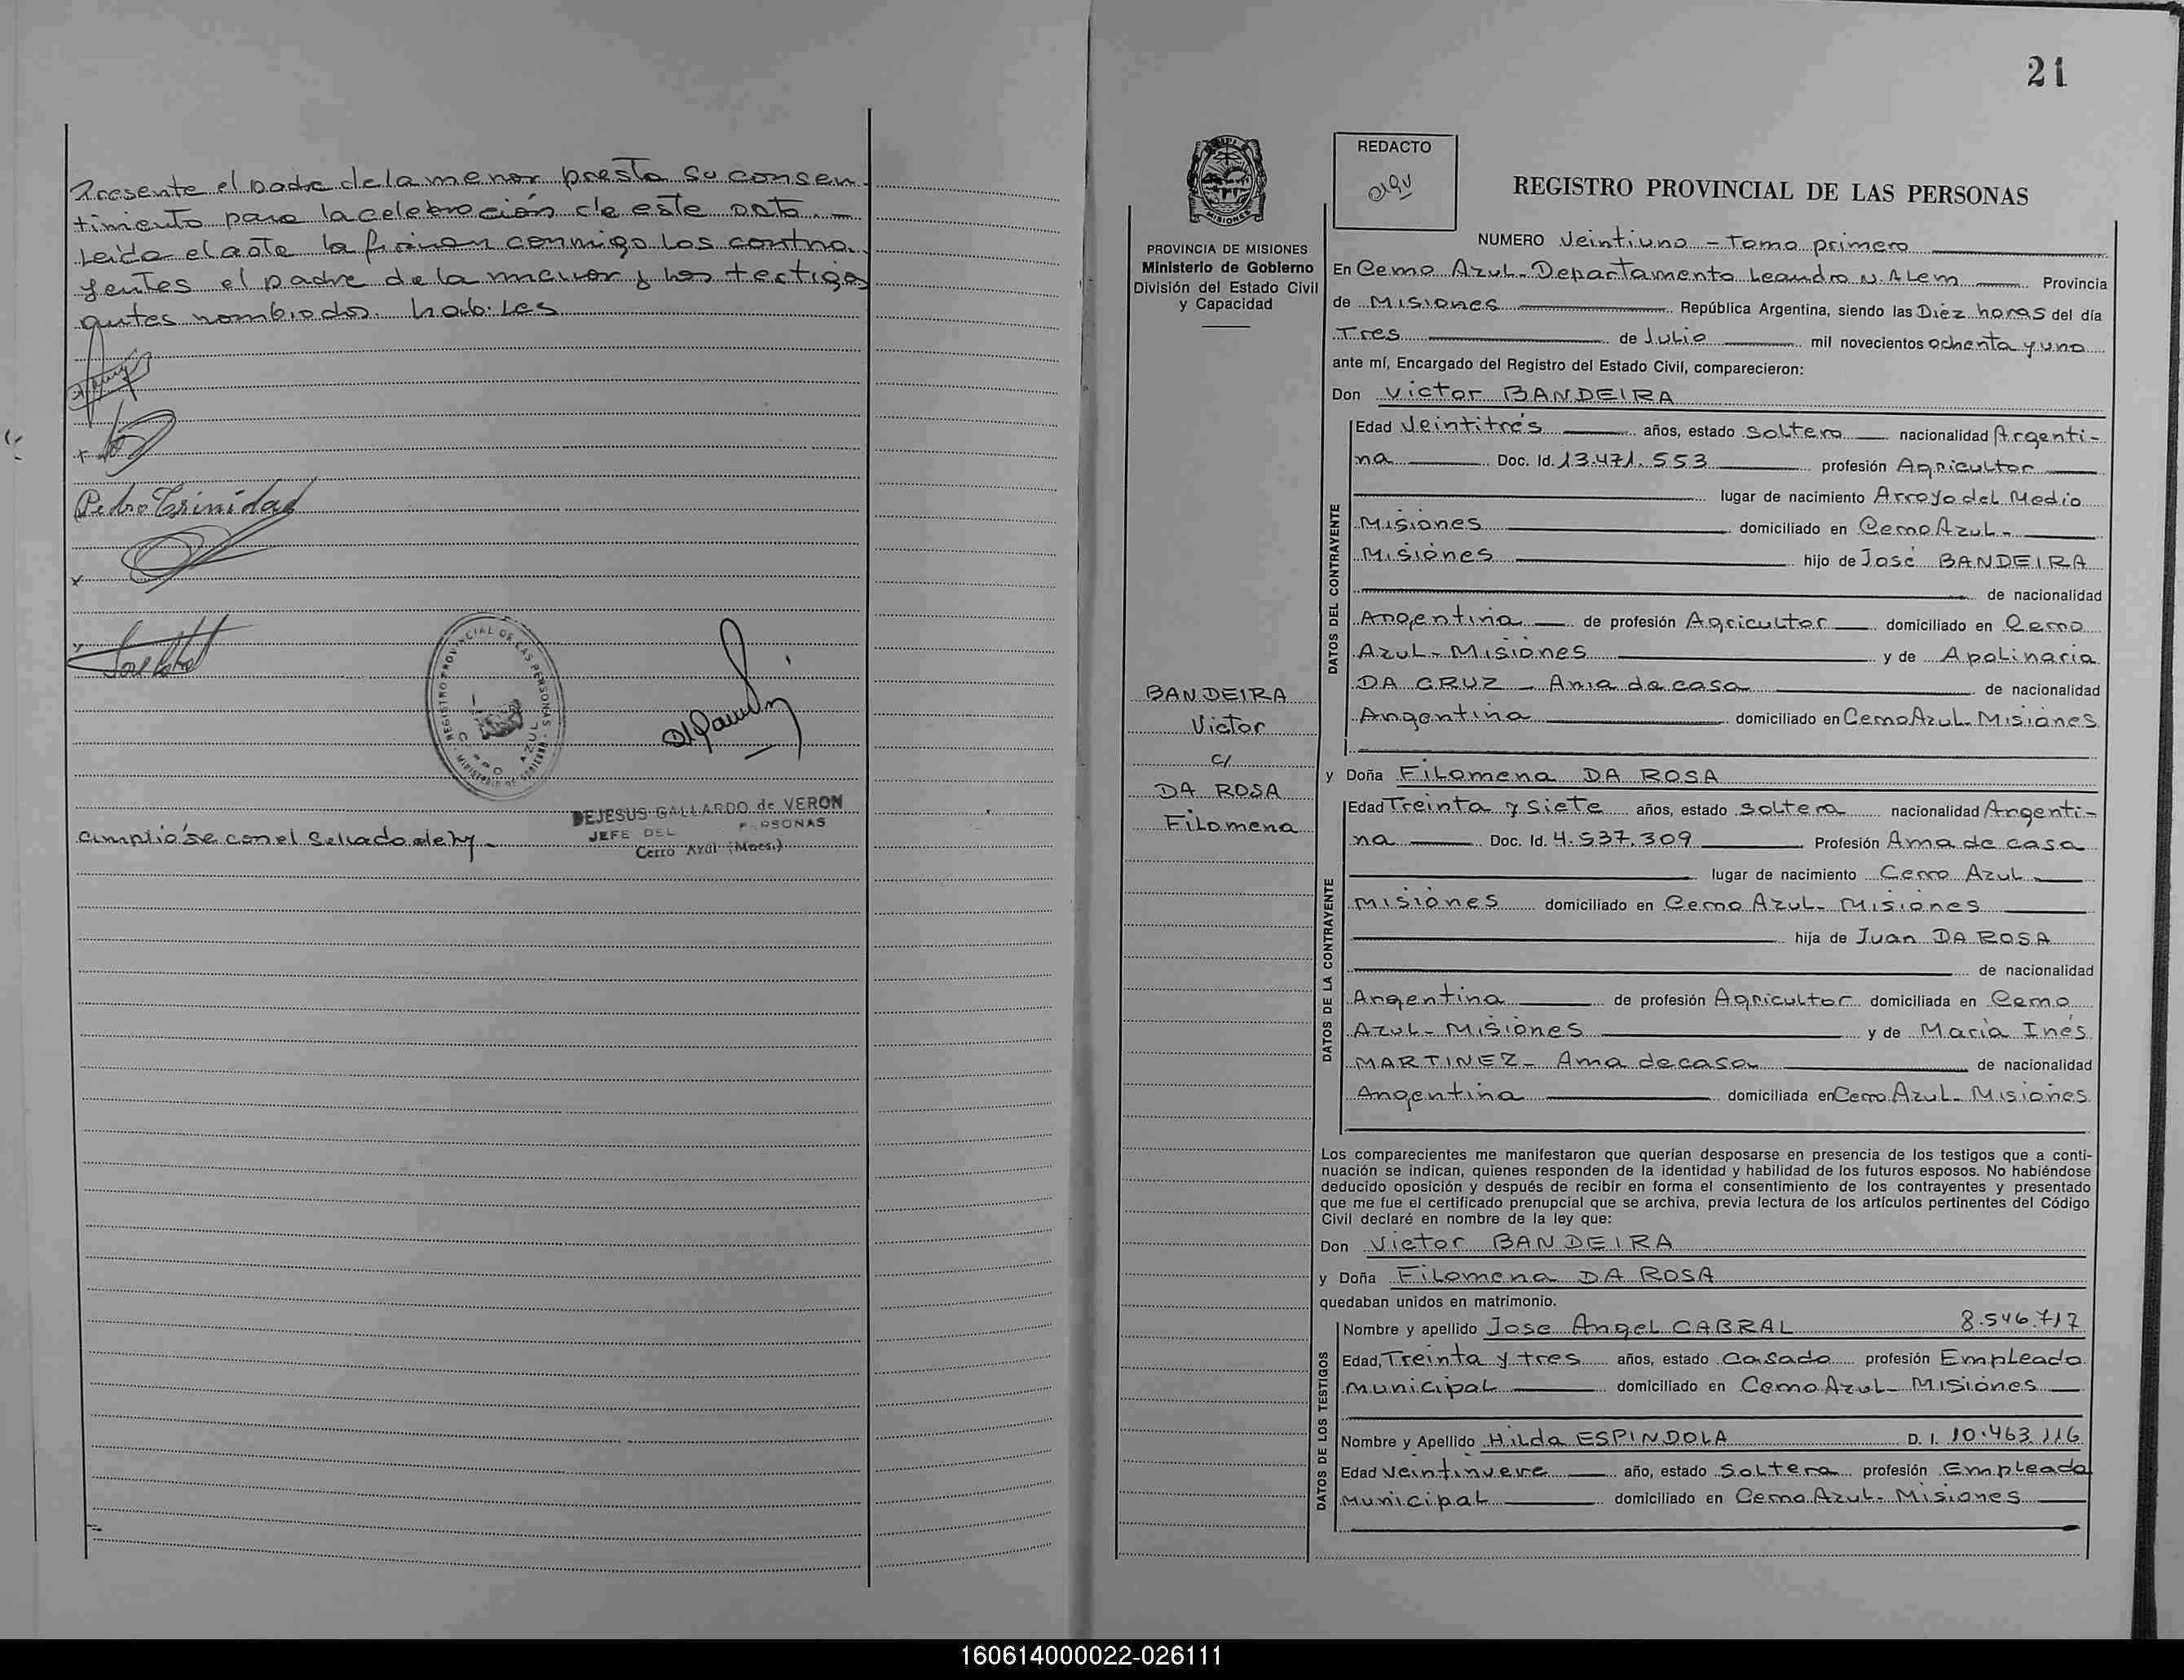 Presente el padre de la menor presta su consen-
timiento para la celebración de este acto. -
Leída el acta la firman conmigo los contra-
yentes el padre de la menor y los testigos
antes nombrados. habiles
Pedro Trinidad
REGISTRO PROVINCIAL DE LAS PERSONAS - MINISTERIO DE GOBIERNO
AZUL
DEJESUS GALLARDO de VERON
JEFE DEL PERSONAS
Cerro Azul (Mnes.)
Cumplióse con el Sellado de ley -
21
PROVINCIA DE MISIONES
Ministerio de Gobierno
División del Estado Civil
y Capacidad
BANDEIRA
Victor
c/
DA ROSA
Filomena
MISIONES
REDACTO
REGISTRO PROVINCIAL DE LAS PERSONAS
NUMERO Veintiuno - Tomo primero
En Cerro Azul - Departamento Leandro N. Alem Provincia
de Misiones República Argentina, siendo las Diez horas del día
Tres de Julio mil novecientos ochenta y uno
ante mí, Encargado del Registro del Estado Civil, comparecieron:
Don Victor BANDEIRA
DATOS DEL CONTRAYENTE
Edad Veintitrés años, estado soltero nacionalidad Argenti-
na Doc. Id. 13.471.553 profesión Agricultor
lugar de nacimiento Arroyo del Medio
Misiones domiciliado en Cerro Azul -
Misiones hijo de José BANDEIRA
de nacionalidad
Argentina de profesión Agricultor domiciliado en Cerro
Azul - Misiones y de Apolinaria
DA CRUZ - Ama de casa de nacionalidad
Argentina domiciliado en Cerro Azul - Misiones
y Doña Filomena DA ROSA
DATOS DE LA CONTRAYENTE
Edad Treinta y Siete años, estado soltera nacionalidad Argenti-
na Doc. Id. 4.537.309 Profesión Ama de casa
lugar de nacimiento Cerro Azul
Misiones domiciliado en Cerro Azul - Misiones
hija de Juan DA ROSA
de nacionalidad
Argentina de profesión Agricultor domiciliada en Cerro
Azul - Misiones y de María Inés
MARTINEZ - Ama de casa de nacionalidad
Argentina domiciliada en Cerro Azul - Misiones
Los comparecientes me manifestaron que querían desposarse en presencia de los testigos que a conti-
nuación se indican, quienes responden de la identidad y habilidad de los futuros esposos. No habiéndose
deducido oposición y después de recibir en forma el consentimiento de los contrayentes y presentado
que me fue el certificado prenupcial que se archiva, previa lectura de los artículos pertinentes del Código
Civil declaré en nombre de la ley que:
Don Victor BANDEIRA
y Doña Filomena DA ROSA
quedaban unidos en matrimonio.
DATOS DE LOS TESTIGOS
Nombre y apellido Jose Angel CABRAL 8.546.717
Edad, Treinta y tres años, estado Casado profesión Empleado
municipal domiciliado en Cerro Azul - Misiones
Nombre y Apellido Hilda ESPINDOLA D. I. 10.463.116
Edad Veintinueve año, estado Soltera profesión Empleada
Municipal domiciliado en Cerro Azul - Misiones
160614000022-026111